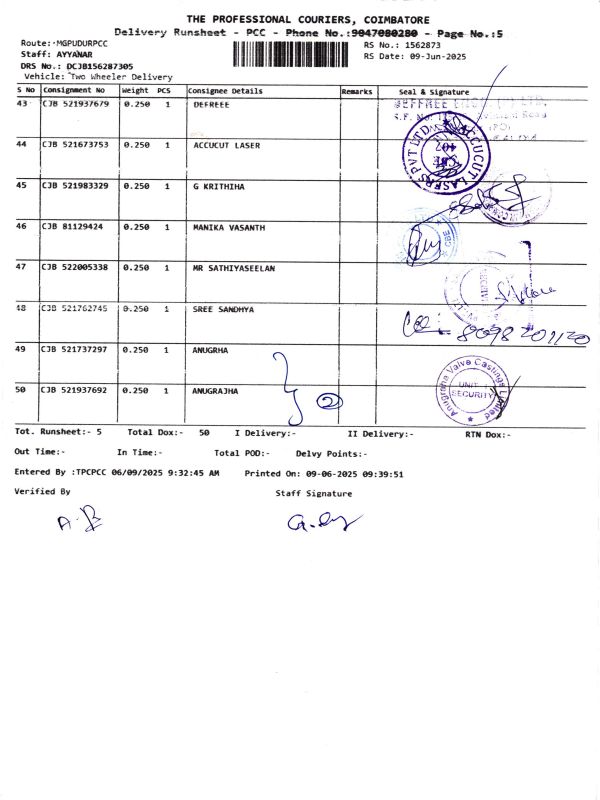 THE PROFESSIONAL COURIERS, COIMBATORE
Delivery Runsheet - PCC - Phone No.:9047080280 - Page No.:5
Route: MGPUDURPCC
Staff: AYYANAR
DRS No.: DCJB156287305
Vehicle: Two Wheeler Delivery
RS No.: 1562873
RS Date: 09-Jun-2025
S No Consignment No Weight PCS Consignee Details Remarks Seal & Signature
43 CJB 521937679 0.250 1 DEFREEE
44 CJB 521673753 0.250 1 ACCUCUT LASER
ACCUCUT LASERS PVT LTD
45 CJB 521983329 0.250 1 G KRITHIHA
46 CJB 81129424 0.250 1 MANIKA VASANTH
47 CJB 522005338 0.250 1 MR SATHIYASEELAN
48 CJB 521762745 0.250 1 SREE SANDHYA
8098201120
49 CJB 521737297 0.250 1 ANUGRHA
50 CJB 521937692 0.250 1 ANUGRAJHA
2
Anugraha Valve Castings Limited
UNIT
SECURITY
Tot. Runsheet:- 5 Total Dox:- 50 I Delivery:- II Delivery:- RTN Dox:-
Out Time:- In Time:- Total POD:- Delvy Points:-
Entered By :TPCPCC 06/09/2025 9:32:45 AM Printed On: 09-06-2025 09:39:51
Verified By Staff Signature